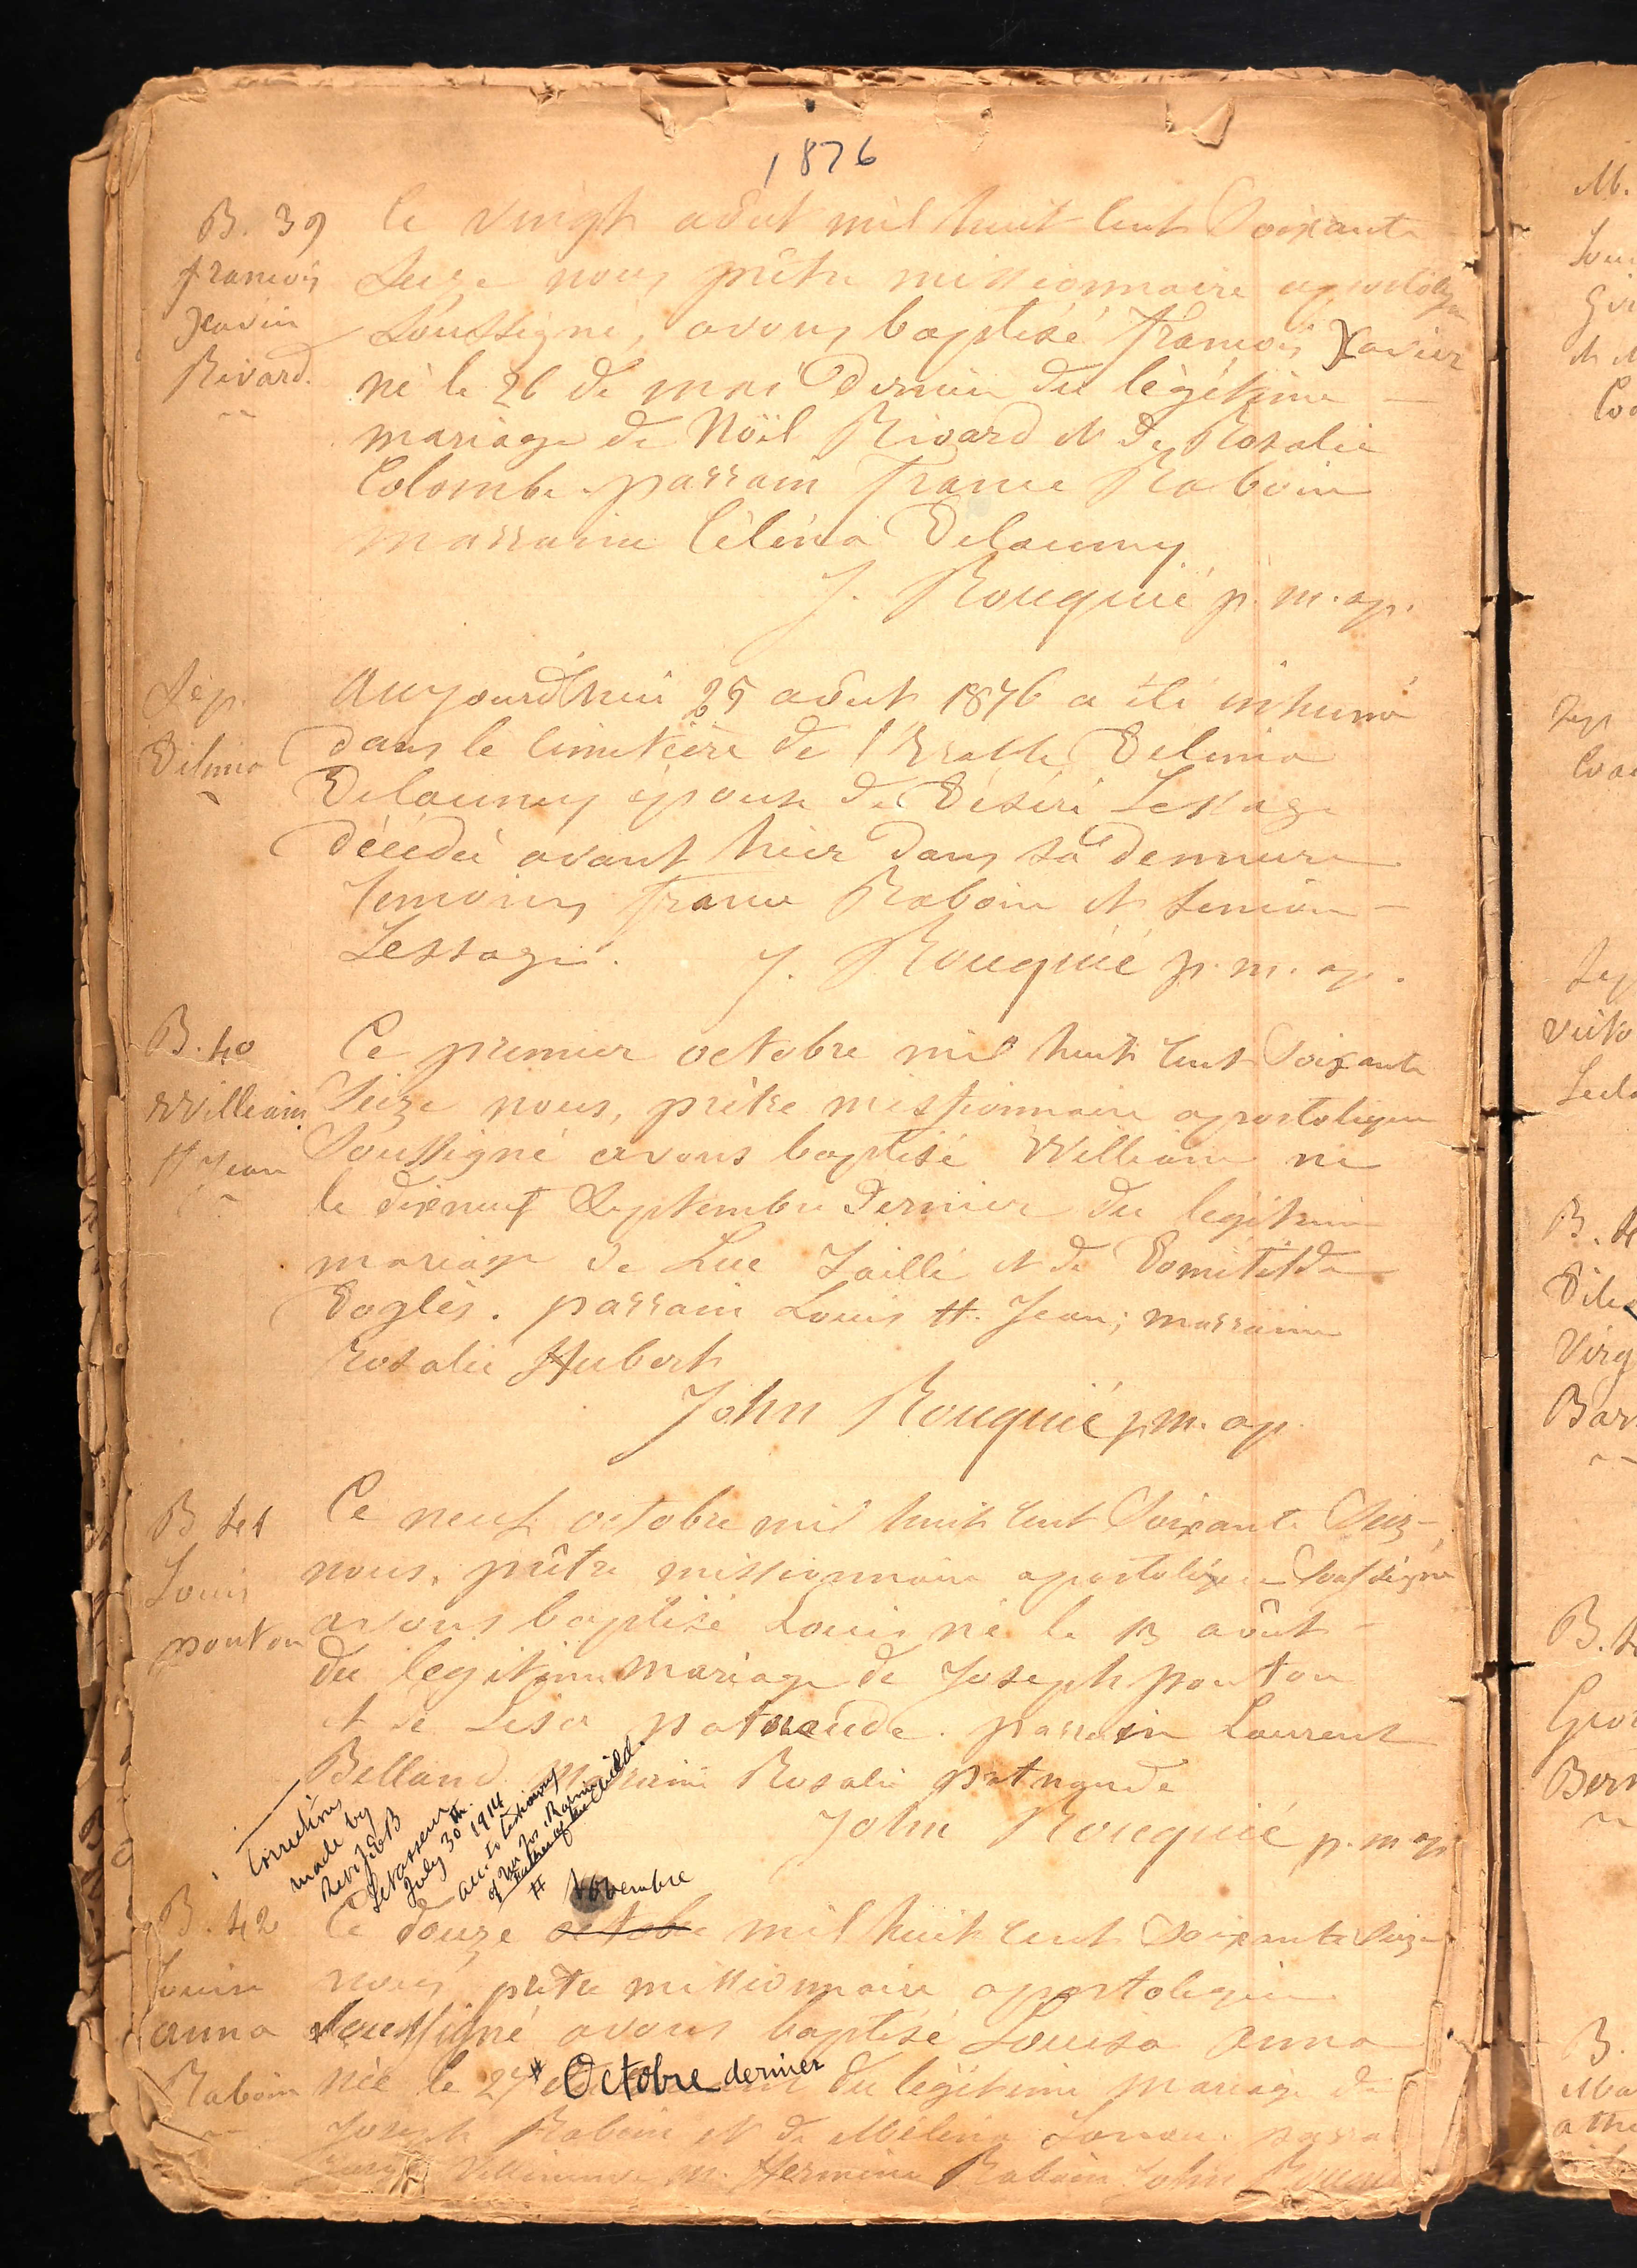 1876
B. 39
francois
Xavier
Rivard.
le vingt août mil huit cent Soixante
Seize nous prêtre missionnaire apostolique
Soussigné, avons baptisé francois Xavier
né le 26 de mai dernier du légitime
mariage de Noël Rivard et de Rosalie
Colombe. parrain france Raboin
marraine Céléna Delauney
J. Rouquié p. m. ap.
Sép.
Delima
Aujourd'hui 25 août 1876 a été inhumé
dans le cimetière de l'Erable Delima
Delauney épouse de Désiré Lesage
décédée avant hier dans sa demeure
temoins france Raboin et
Lessage. J. Rouquié p. m. ap.
B. 40
William
St Jean
Ce premier octobre mil huit cent Soixante
Seize nous, prêtre missionnaire apostolique
Soussigné avons baptisé William né
le dixneuf Septembre dernier du légitime
mariage de Luc et de Domitilde
parrain Louis St. Jean; marraine
Rosalie Hubert
John Rouquié p. m. ap.
B 41
Louis
ponton
Ce neuf octobre mil huit cent Soixante Seize
nous, prêtre missionnaire apostolique Soussigné
avons baptisé Louis né le 13 août
du légitime mariage de Joseph ponton
et de Lisa patnaude. parrain Laurent
Belland marraine Rosalie patnaude
John Rouquié p. m. ap
Corrections
made by
Rev J. B
Levasseur
July 30th 1914
acc. to testimony
of Mr Jos. Raboin
Father of the Child.
# Novembre
B. 42
Louisa
anna
Raboin
Ce douze octobre mil huit cent Soixante Seize
nous, prêtre missionnaire apostolique
Soussigné avons baptisé Louisa anna
née le 27 # Octobre dernier du légitime mariage de
Joseph Raboin et de Mélina
m. Hermine Raboin John